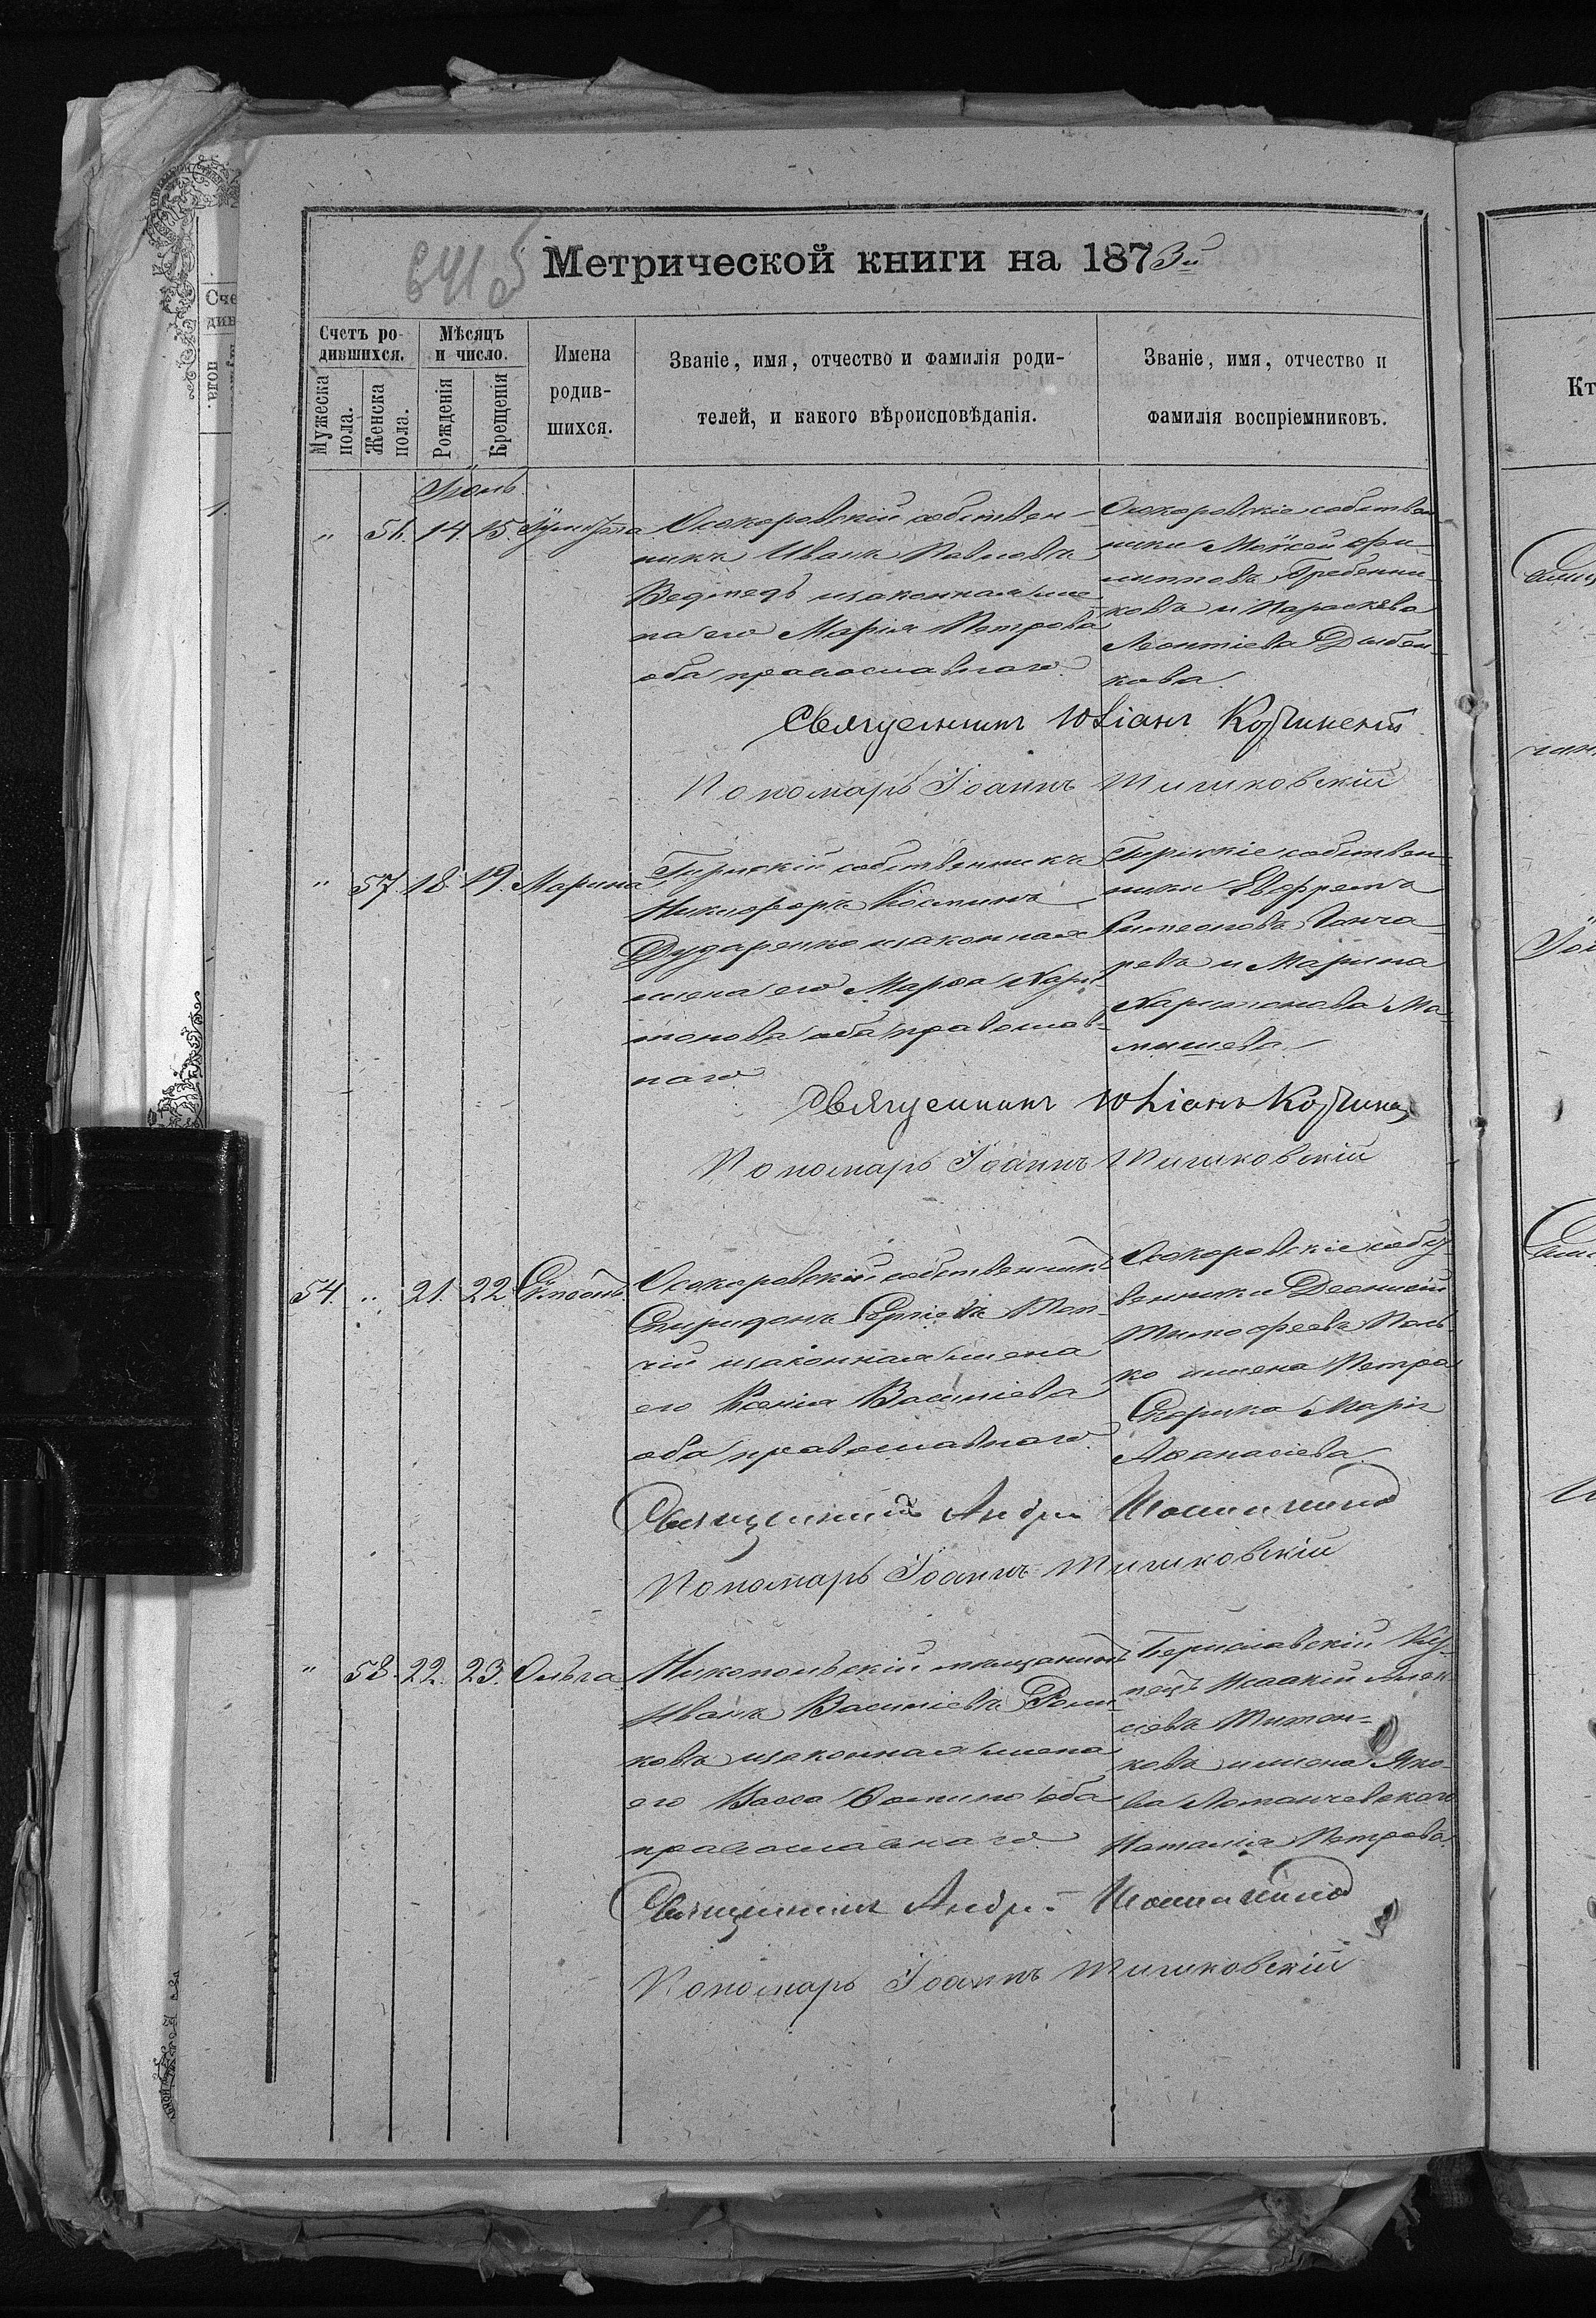 641 б
Метрической книги на 1873й
Счетъ ро-
дившихся.
Мужеска
пола.
Женска
пола.
Мѣсяцъ
и число.
Рожденія
Крещенія
Имена
родив-
шихся.
Званіе, имя, отчество и фамилія роди-
телей, и какого вѣроисповѣданія.
Званіе, имя, отчество и
фамилія воспріемниковъ.
Іюль.
" 56. 14. 15.
Осокоровскій собствен-
никъ Иванъ Павловъ
Ведмедь и законная же-
на его Марія Петрова
оба православнаго.
Осокоровскіе собствен-
ники Моѵсей Фи-
липповъ Гребенни-
ковъ и Параскева
Леонтіева Дыбен-
кова.
Священникъ Юліанъ
Пономарь Іоаннъ Шишковскій
" 57. 18. 19. Марина
собственникъ
Никифоръ Костинъ
Дударенко и законная
жена его Марѳа Хари-
тонова оба православ-
наго
собствен-
ники Евфремъ
Симеоновъ Гонча-
ревъ и Марина
Харитонова Ма-
мшева.
Священникъ Юліанъ
Пономарь Іоаннъ Шишковскій
54. " 21. 22.
Осокоровскій собственникъ
Спиридонъ Сергіевъ Топ-
чій и законная жена
его Ксенія Василіева
оба православнаго.
Осокоровскіе собст-
венники Діонисій
Тимофеевъ Поль-
ко и жена Петра
Скорика Марія
Аѳанасіева.
Священникъ Андрей
Пономарь Іоаннъ Шишковскій
" 58. 22. 23. Ольга
Никопольскій мѣщанинъ
Иванъ Василіевъ
ковъ и законная жена
его Васса Фомина оба
православнаго
Бериславскій Ку-
пецъ Исаакій Алек-
сіевъ Титон-
ковъ и жена Яко-
ва
Наталія Петрова.
Священникъ Андрей
Пономарь Іоаннъ Шишковскій